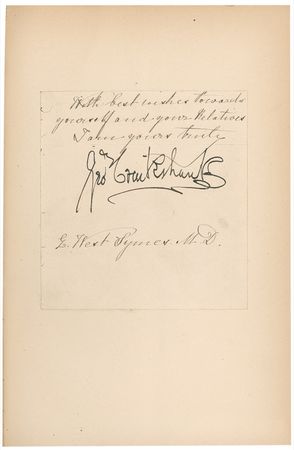 With best wishes towards
yourself and your Relatives
I am yours truly
Geo Cruikshank
E. West Symes. M.D.